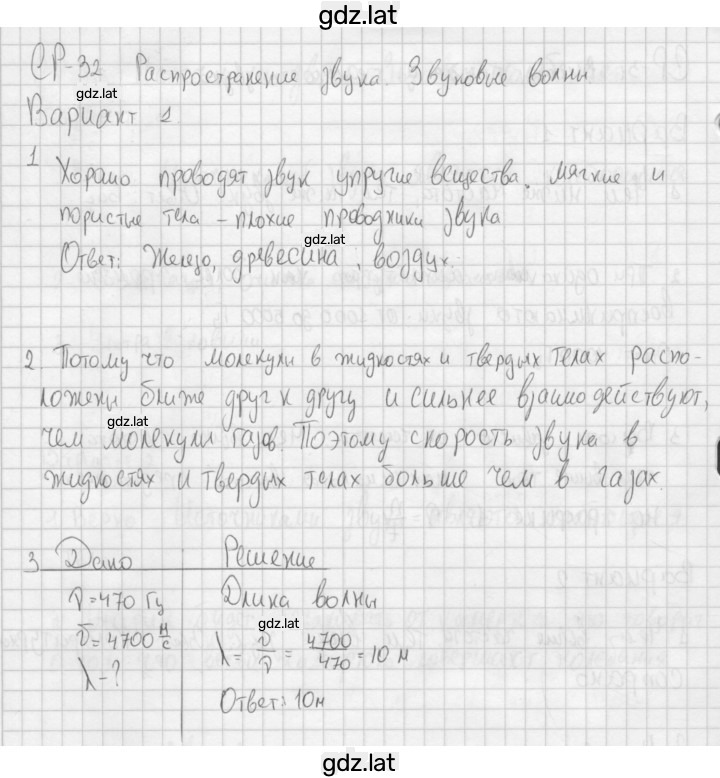 gdz.lat
СР-32 Распространение звука. Звуковые волны
gdz.lat
Вариант 1.
1 Хорошо проводят звук упругие вещества. Мягкие и
пористые тела - плохие проводники звука
gdz.lat
Ответ: Железо, древесина, воздух.
2. Потому что молекули в жидкостях и твердых телах распо-
ложены ближе друг к другу и сильнее взаимодействуют,
gdz.lat
чем молекули газов. Поэтому скорость звука в
жидкостях и твердых телах больше чем в газах.
3 Дано Решение
ν=470 Гц Длина волны
gdz.lat
v=4700 м/с λ= v/ν = 4700/470 = 10 м
λ-?
Ответ: 10м
gdz.lat